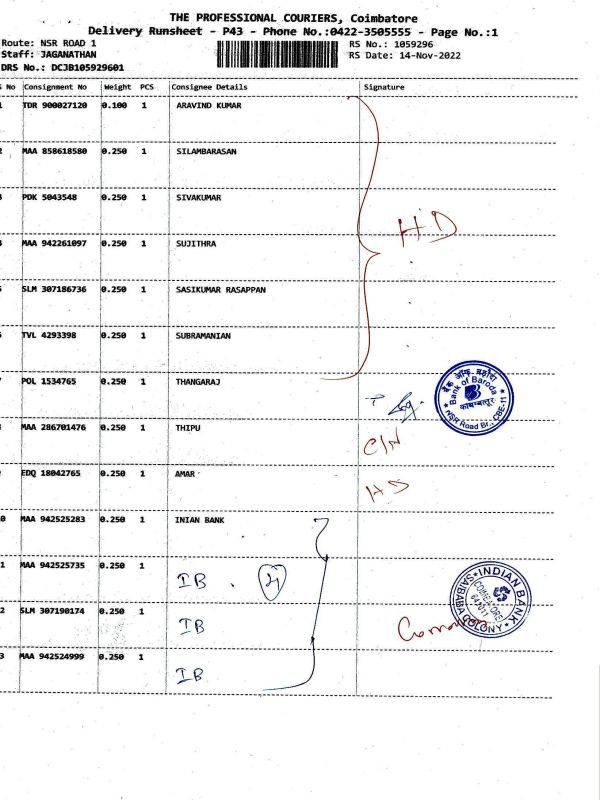 THE PROFESSIONAL COURIERS, Coimbatore
Delivery Runsheet - P43 - Phone No.:0422-3505555 - Page No.:1
Route: NSR ROAD 1 RS No.: 1059296
Staff: JAGANATHAN RS Date: 14-Nov-2022
DRS No.: DCJB105929601
No Consignment No Weight PCS Consignee Details Signature
1 TDR 900027120 0.100 1 ARAVIND KUMAR
2 MAA 858618580 0.250 1 SILAMBARASAN
PDK 5043548 0.250 1 SIVAKUMAR
HD
MAA 942261097 0.250 1 SUJITHRA
SLM 307186736 0.250 1 SASIKUMAR RASAPPAN
TVL 4293398 0.250 1 SUBRAMANIAN
POL 1534765 0.250 1 THANGARAJ
बैंक ऑफ़ बड़ौदा
Bank of Baroda
कोयम्बत्तूर
NSR Road Br., CBE-11
MAA 286701476 0.250 1 THIPU
C/N
EDQ 18042765 0.250 1 AMAR
HD
0 MAA 942525283 0.250 1 INIAN BANK
1 MAA 942525735 0.250 1
IB 4
INDIAN BANK
COIMBATORE
641011
SAIBABA COLONY
2 SLM 307190174 0.250 1
IB
3 MAA 942524999 0.250 1
IB